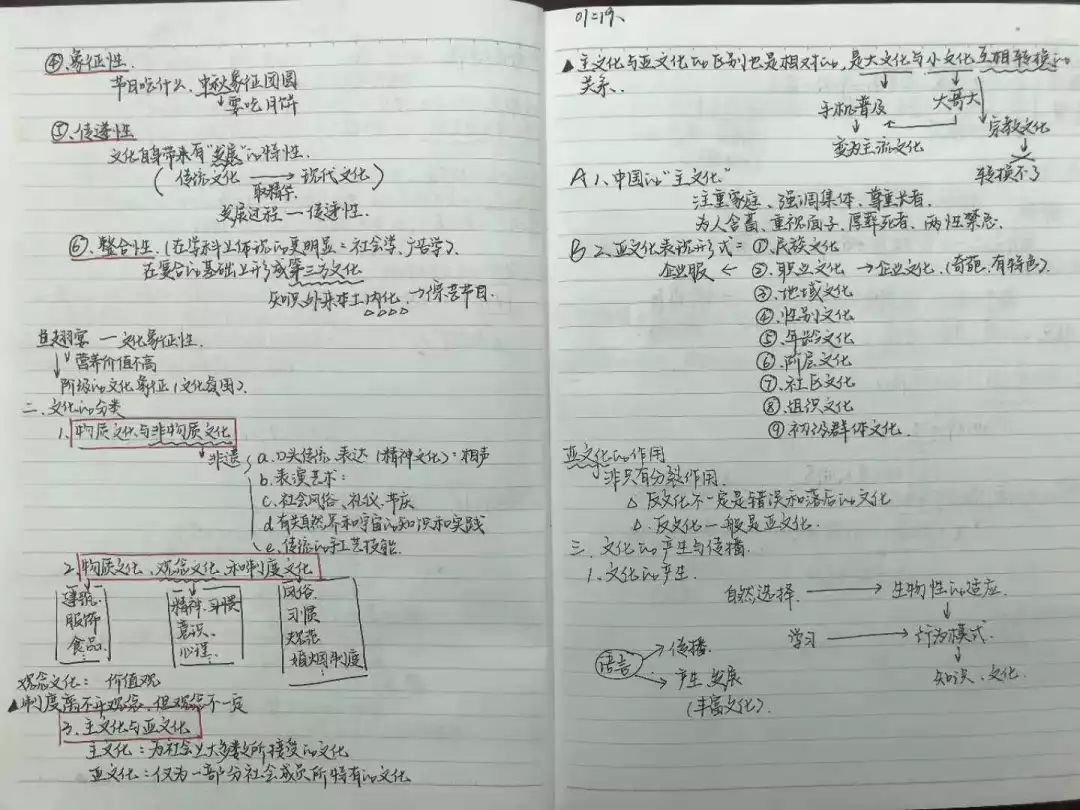 ④、象征性.
节日吃什么、中秋象征团圆
要吃月饼
⑤、传递性
文化自身带来有"发展"的特性.
(传统文化 → 现代文化)
取精华
发展过程 — 传递性.
⑥、整合性.(在学科上体现的更明显:社会学、广告学).
在复合的基础上形成第三方文化
知识外来本土内化. → 保苦节目.
鱼翅宴 — 文化象征性.
↓ 营养价值不高
阶级的文化象征(文化氛围).
二、文化的分类
1. 物质文化与非物质文化
非遗
a. 口头传统、表达(精神文化):相声
b. 表演艺术:
c. 社会风俗、礼仪、节庆
d. 有关自然界和宇宙的知识和实践
e. 传统的手工艺技能.
2. 物质文化、观念文化、和制度文化
建筑. 服饰 食品.
精神.习惯 意识. 心理.
风俗. 习惯 规范 婚姻制度
观念文化:价值观
▲制度离不开观念、但观念不一定
3. 主文化与亚文化
主文化:为社会上大多数所接受的文化
亚文化:仅为一部分社会成员所特有的文化
▲主文化与亚文化的区别也是相对的、是大文化与小文化互相转换的
关系、
手机普及 ← 大哥大
变为主流文化
宗教文化
转换不了
A 1、中国的"主文化"
注重家庭、强调集体、尊重长者.
为人含蓄、重视面子、厚葬死者、两性禁忌.
B 2、亚文化表现形式: ①、民族文化
企业服 ← ②、职业文化 → 企业文化.(奇葩.有特色).
③、地域文化
④、性别文化
⑤、年龄文化
⑥、阶层文化
⑦、社区文化
⑧、组织文化
⑨、初级群体文化.
亚文化的作用
非只有分裂作用.
△ 反文化不一定是错误和落后的文化
△. 反文化一般是亚文化.
三、文化的产生与传播.
1、文化的产生.
自然选择 → 生物性的适应.
学习 → 行为模式.
知识、文化.
语言 → 传播.
→ 产生、发展
(丰富文化).